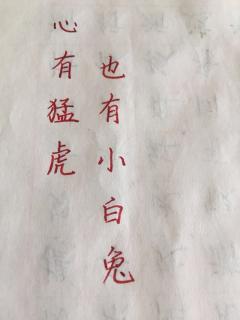 心有猛虎
也有小白兔